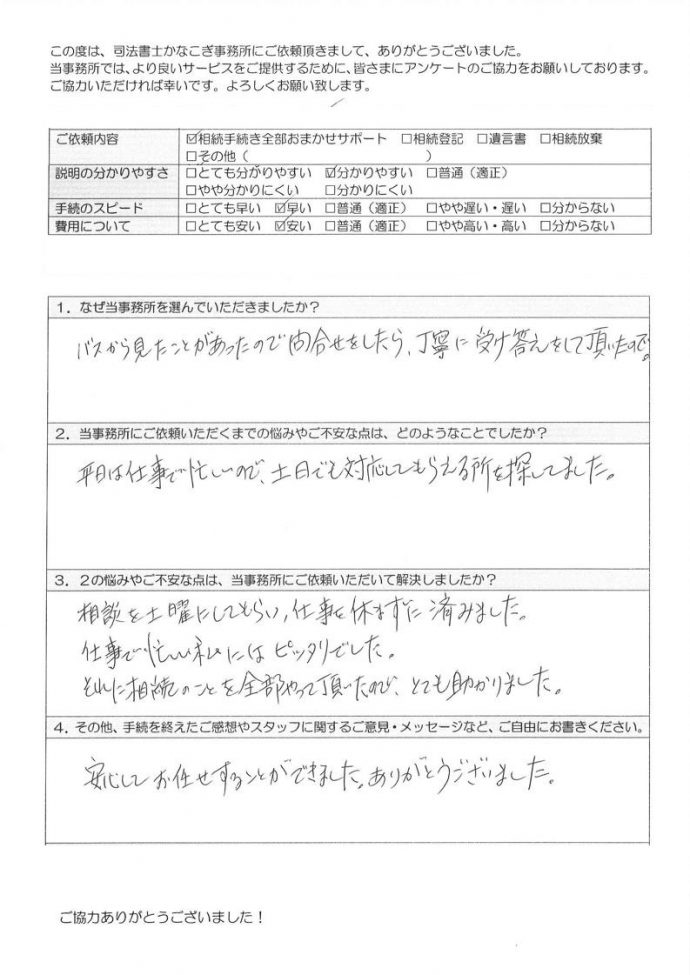 この度は、司法書士かなこぎ事務所にご依頼頂きまして、ありがとうございました。
当事務所では、より良いサービスをご提供するために、皆さまにアンケートのご協力をお願いしております。
ご協力いただければ幸いです。よろしくお願い致します。
ご依頼内容 ☑相続手続き全部おまかせサポート □相続登記 □遺言書 □相続放棄
□その他（ ）
説明の分かりやすさ □とても分かりやすい ☑分かりやすい □普通（適正）
□やや分かりにくい □分かりにくい
手続のスピード □とても早い ☑早い □普通（適正） □やや遅い・遅い □分からない
費用について □とても安い ☑安い □普通（適正） □やや高い・高い □分からない
1．なぜ当事務所を選んでいただきましたか？
バスから見たことがあったので問合せをしたら、丁寧に受け答えをして頂いたので。
2．当事務所にご依頼いただくまでの悩みやご不安な点は、どのようなことでしたか？
平日は仕事で忙しいので、土日でも対応してもらえる所を探してました。
3．2の悩みやご不安な点は、当事務所にご依頼いただいて解決しましたか？
相談を土曜にしてもらい、仕事を休まずに済みました。
仕事で忙しい私にはピッタリでした。
それに相続のことを全部やって頂いたので、とても助かりました。
4．その他、手続を終えたご感想やスタッフに関するご意見・メッセージなど、ご自由にお書きください。
安心してお任せすることができました。ありがとうございました。
ご協力ありがとうございました！